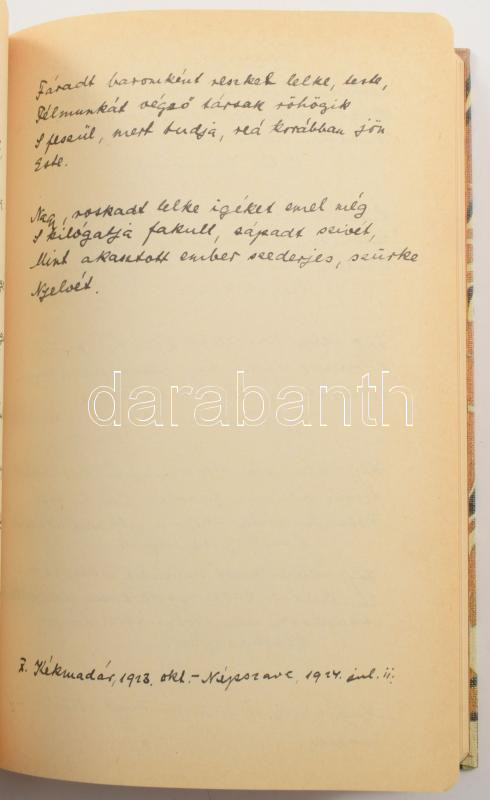 Fáradt baromként reszket lelke, teste,
Félmunkát végző társak röhögik
S feszül, mert tudja, reá korábban jön
Este.
Nagy, roskadt lelke igéket emel még
S kilógatja fakult, sápadt szivét,
Mint akasztott ember szederjes, szürke
Nyelvét.
darabanth
Kékmadár, 1923. okt. - Népszava, 1924. júl. 11.